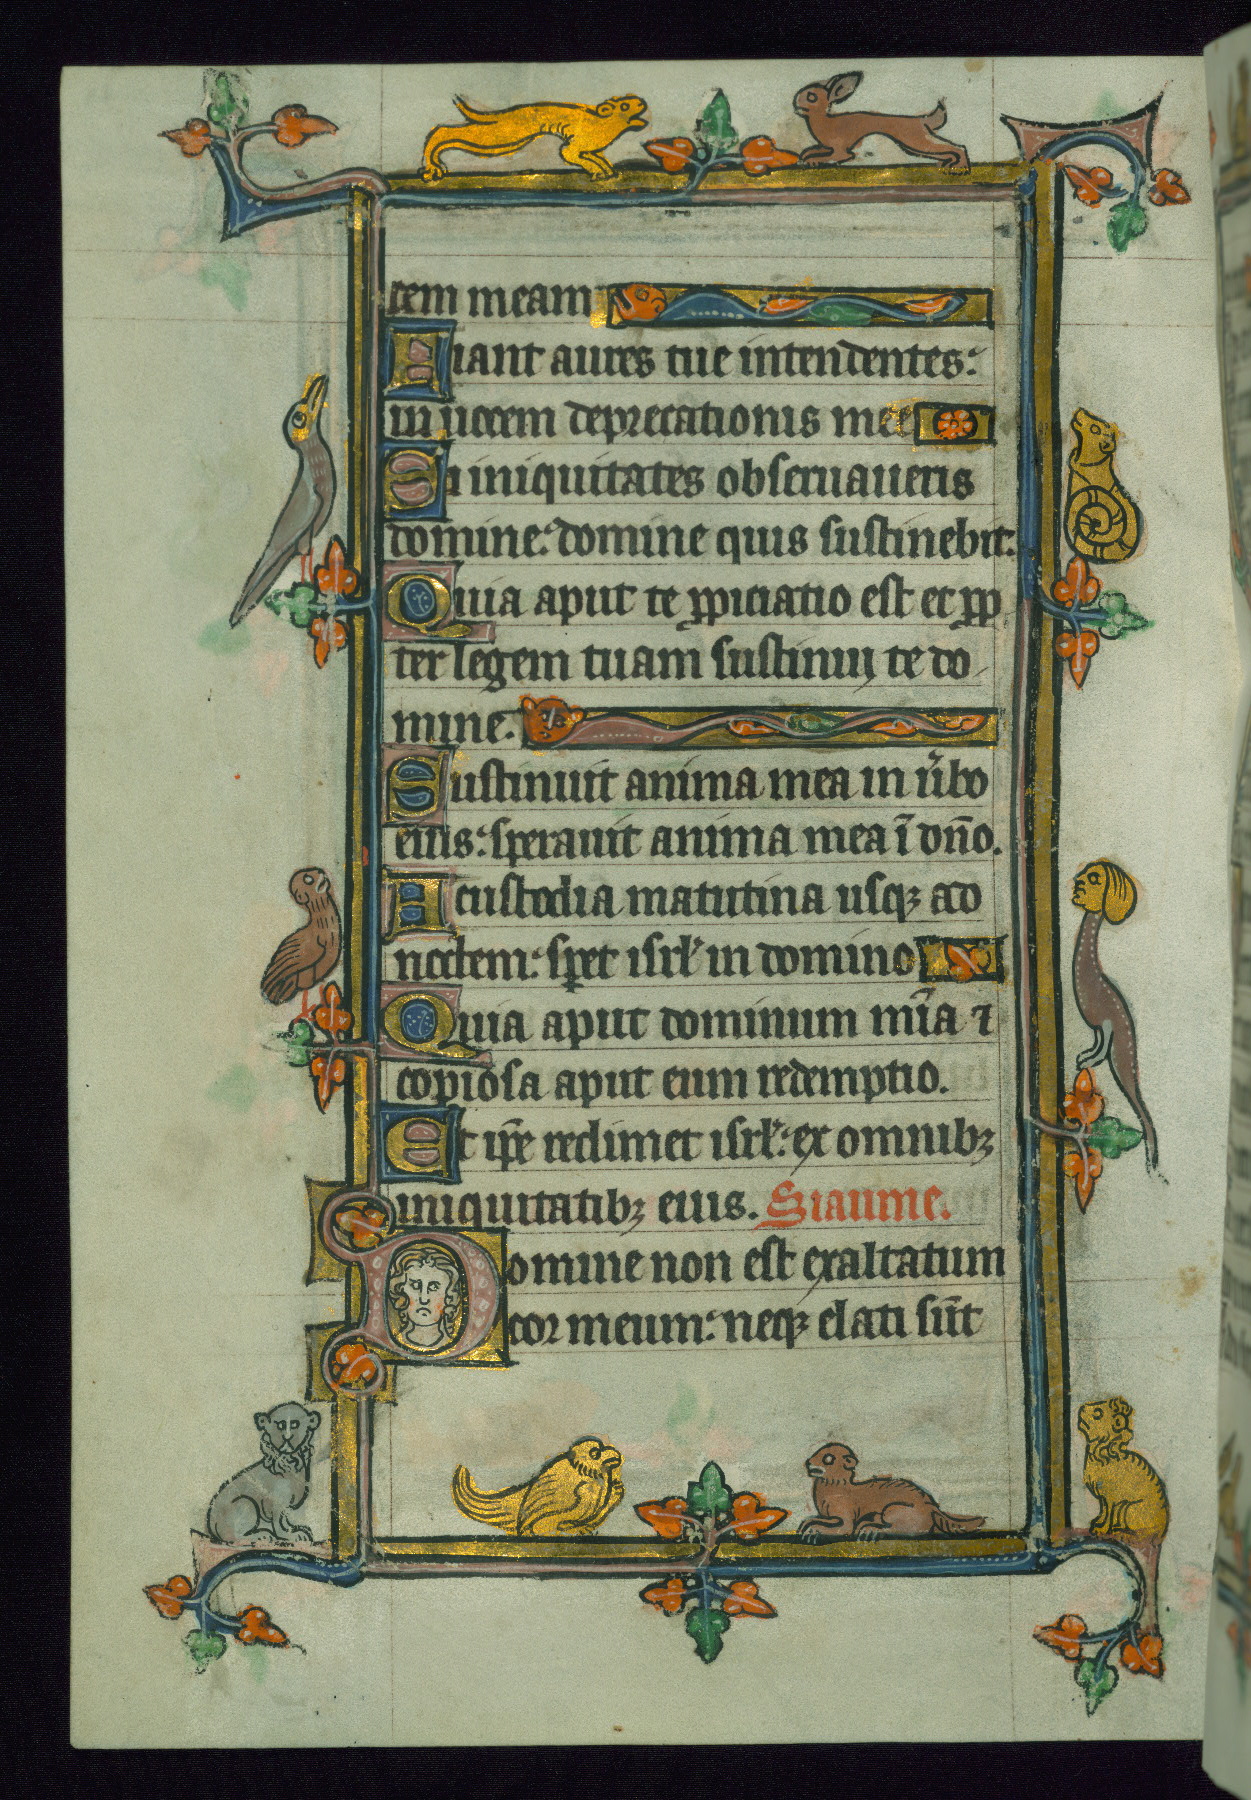 cem meam
Fiant aures tue intendentes:
in uocem deprecationis mee
Si iniquitates obseruaueris
domine: domine quis sustinebit:
Quia aput te ꝓpiciatio est et ꝓp
ter legem tuam sustinui te do
mine.
Sustinuit anima mea in ůbo
eius: sperauit anima mea ī dn̄o.
A custodia matutina usqꝫ ad
noctem: speret isrl' in domino
Quia aput dominum mīa ⁊
copiosa aput eum redemptio.
Et ip̄e redimet isrl': ex omnibꝫ
iniquitatibꝫ eius. Siaume.
Domine non est exaltatum
cor meum: neqꝫ elati sūt